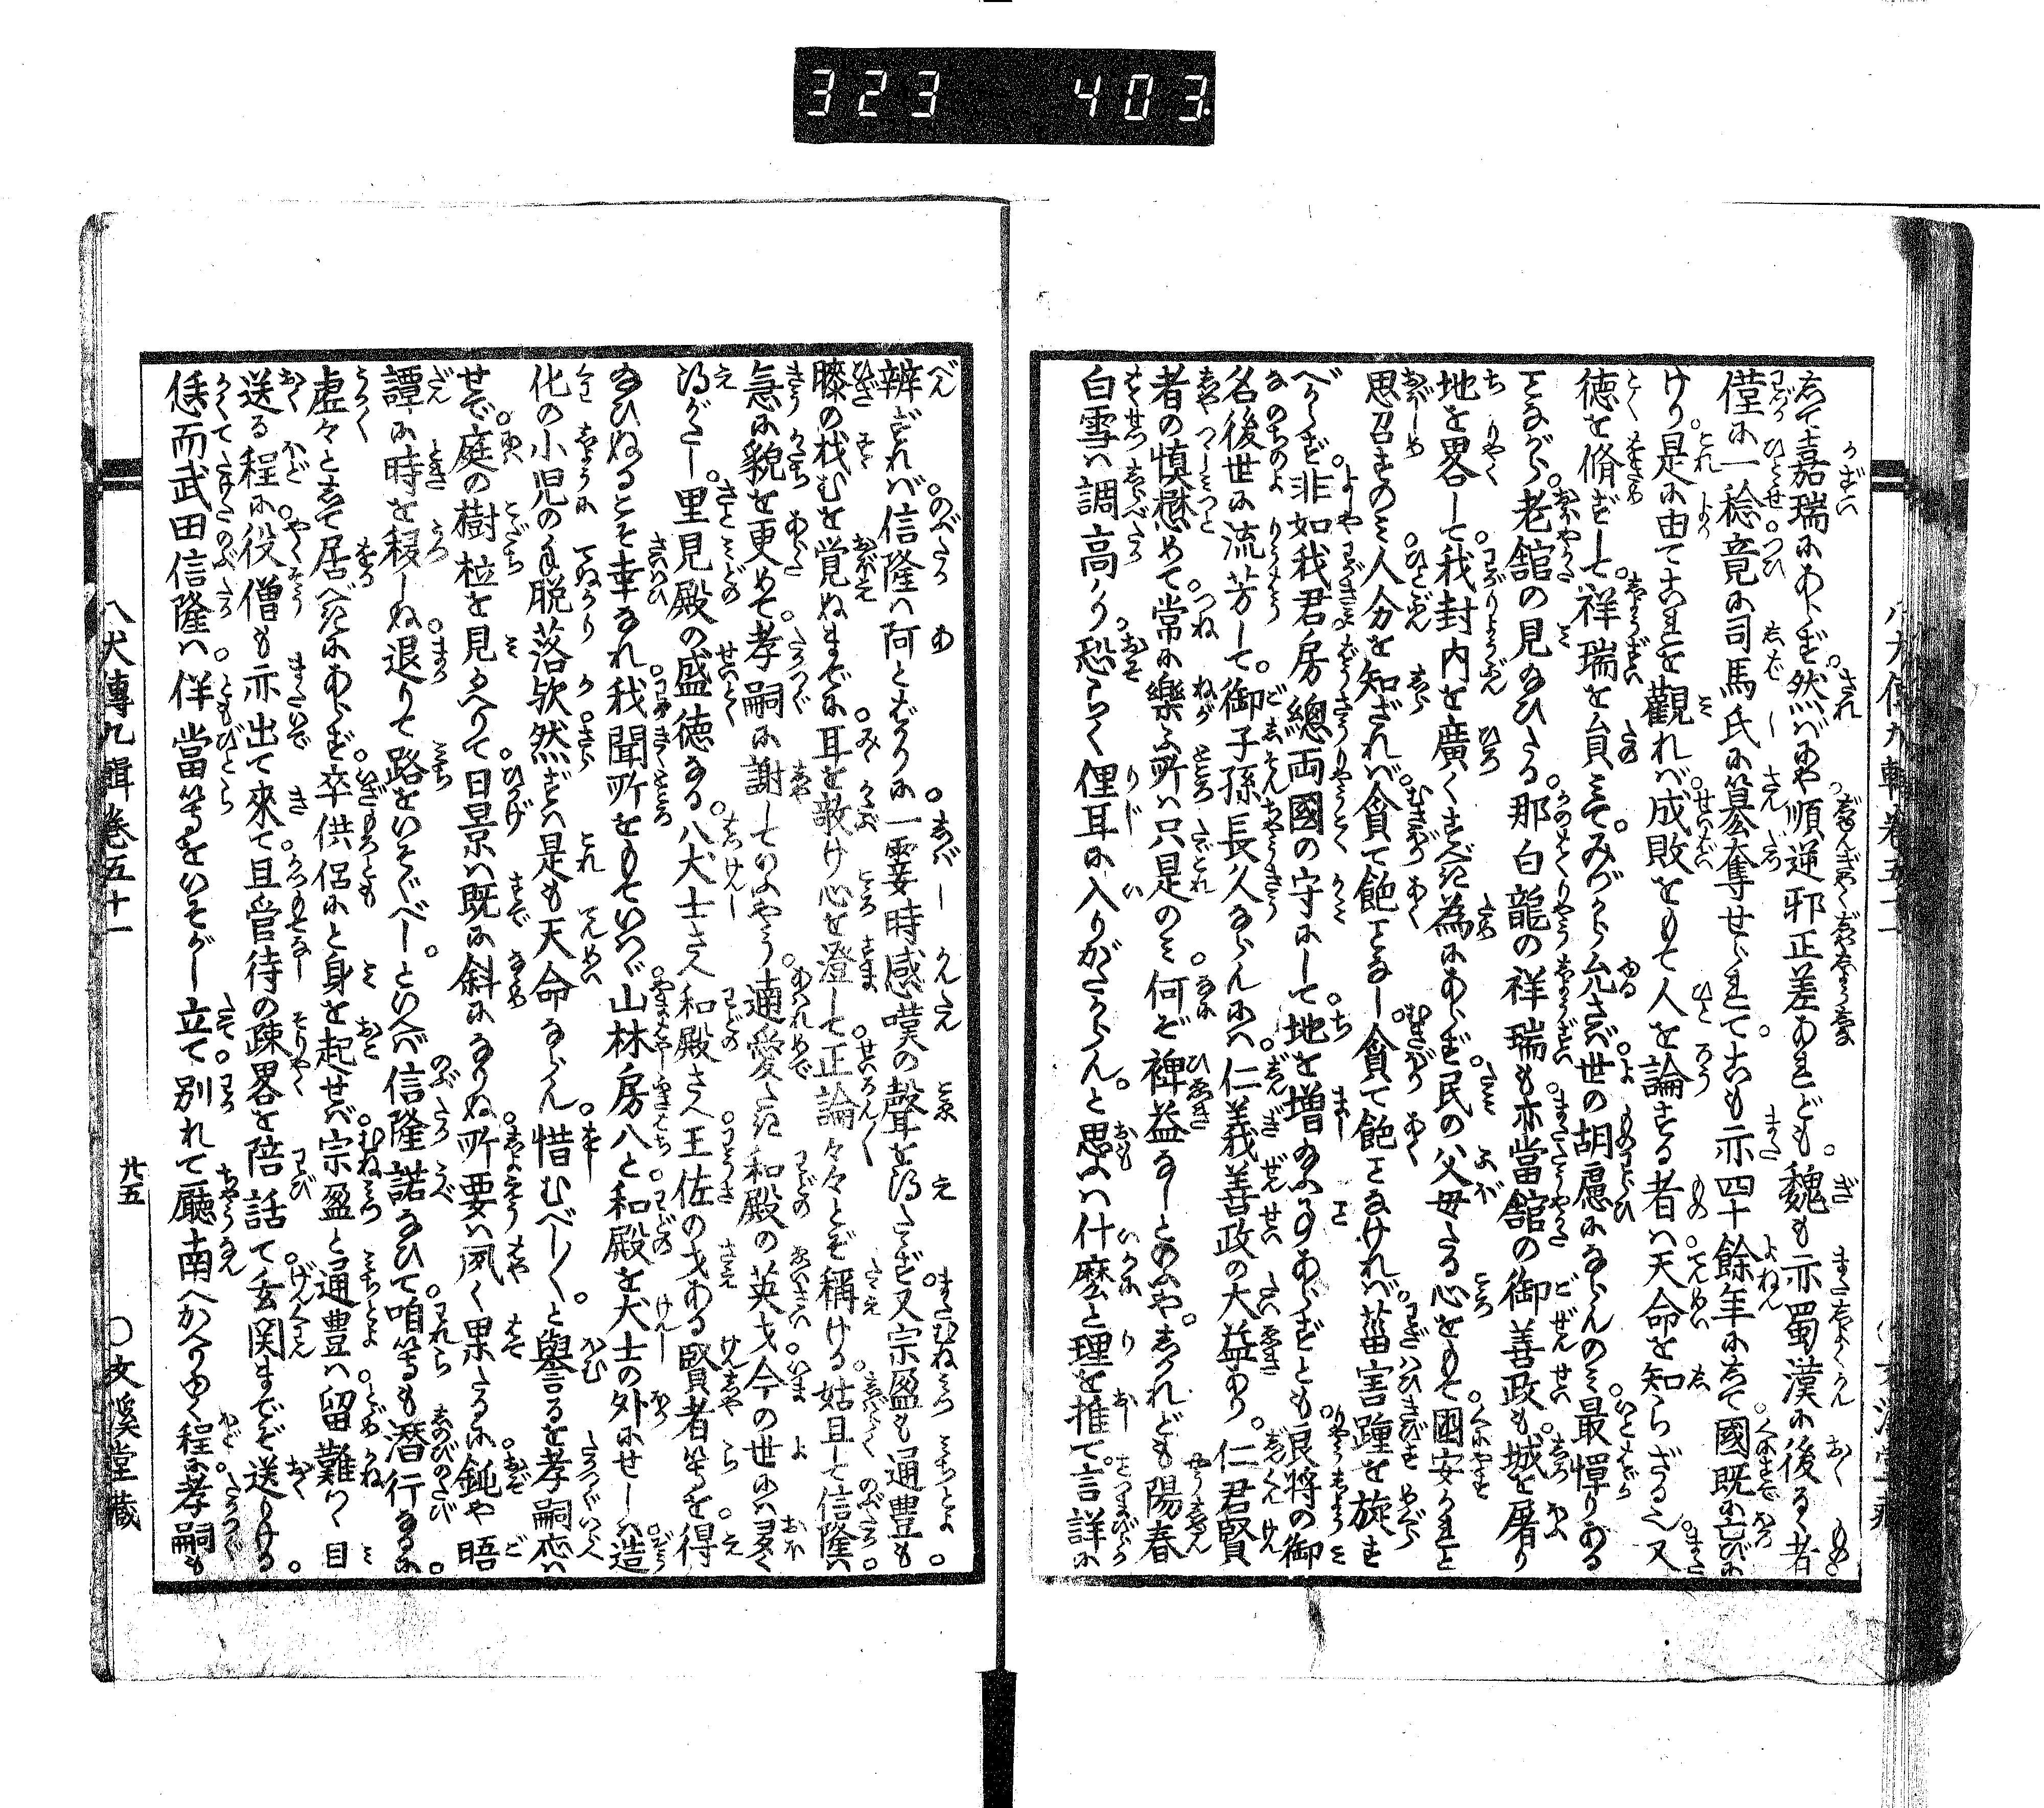 323 403
して嘉瑞にあらず。然ばや順逆邪正差あれども。魏も亦蜀漢に後るゝ者
僅に一稔。竟に司馬氏に簒奪せられて。こも亦四十餘年にして國既に亡びに
けり。是に由てこれを觀れば。成敗をもて人を論ずる者は。天命を知らざる也。又
徳を脩ずして。祥瑞を負みて。みづから允さば。世の胡慮にならんのみ。最憚りある
ことながら。老舘の見給ひたる。那白龍の祥瑞も。亦當舘の御善政も。城を屠り
地を畧して。我封内を廣くすべき為にあらず。民の父母たる心をもて。國安かれと
思召すのみ。人分を知ざれば。貪て飽ことなし。貪て飽ことなければ。菑害踵を旋す
べからず。非如我君房總両國の守にして。地を増給ふ事あらずとも。良将の御
名後世に流芳して。御子孫長久ならんには。仁義善政の大益あり。仁君賢
者の慎懋めて。常に樂ふ所は只是のみ。何ぞ裨益なしとのふや。しかれども陽春
白雪は調高かり。恐らく俚耳に入りがたからん。と思ふは什麼と理を推て。言詳に
八犬傳九輯巻五十一
辨ずれば。信隆は阿とばかりに。一霎時感嘆の聲を得たゝず。又宗盈も通豊も。
膝の找むを覚ぬまでに。耳を敧け心を澄して。正論々々とぞ稱ける。姑且して信隆は。
急に貌を更めて。孝嗣に謝していふやう。遖愛たき和殿の英才。今の世には多く
得がたし。里見殿の盛徳なる。八犬士さへ和殿さへ。王佐の才ある賢者等を得
給ひぬるこそ幸なれ。我聞所をもていへば。山林房八と和殿を。犬士の外にせしは。造
化の小児の手脱落歟。然ずは是も天命ならん。惜むべし〳〵と。譽るを孝嗣応は
せで。庭の樹柆を見かへりて。日景は既に斜になりぬ。所要は夙く果たるに。鈍や晤
譚に時を移しぬ。退りて路をいそぐべし。といへば信隆諾なひて。咱等も潜行なるに。
虚々として居べきにあらず。卒供侶にと身を起せば。宗盈と通豊は。留難つゝ目
送る程に。役僧も亦出て來て。且管待の疎畧を陪話て。玄関までぞ送りける。
恁而武田信隆は。伴當等をいそがし立て。別れて廳南へかへりゆく程に。孝嗣も
八犬傳九輯巻五十一
廿五
○文溪堂藏